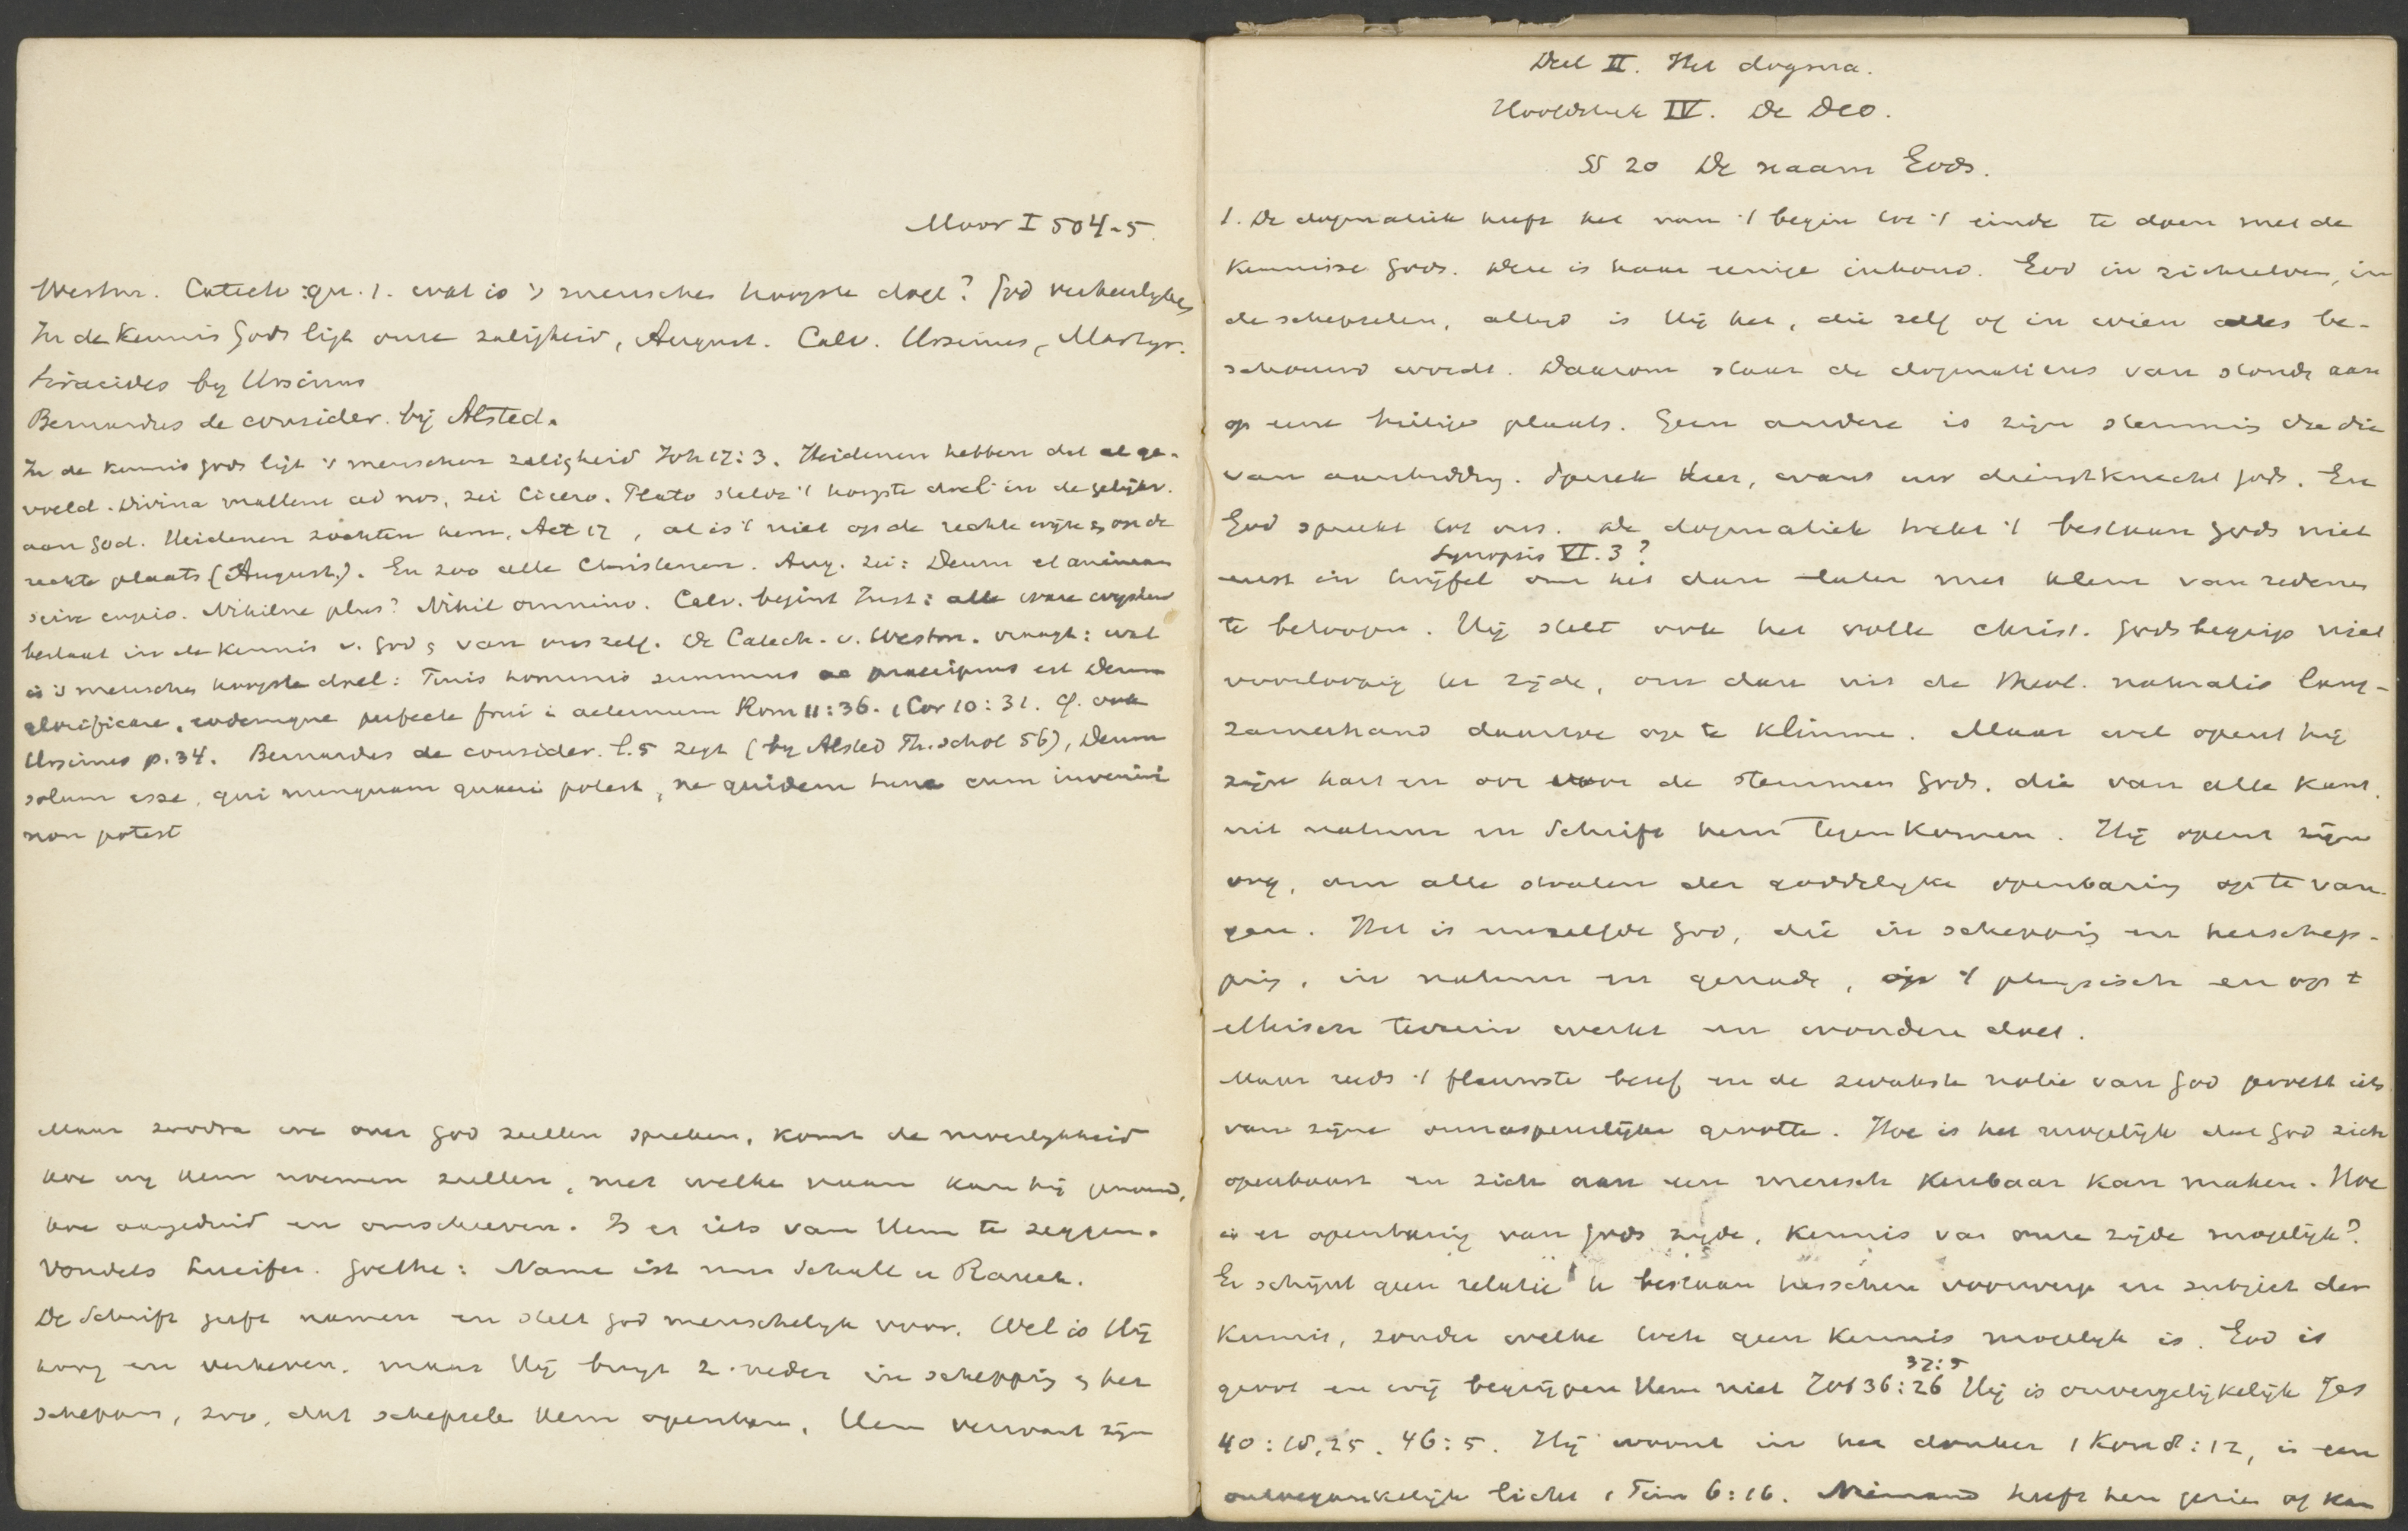 Moor I 504-5.
Westm. Catech: qu. 1. wat is 's menschen hoogste doel? God verheerlijken
In de kennis Gods ligt onze zaligheid, August. Calv. Ursinus, Martyr.
Siracides by Ursinus
Bernardus de consider. bij Alsted.
In de kennis Gods ligt 's menschen zaligheid Joh 17:3. Heidenen hebben dat al ge-
voeld. Divina mallem ad nos, zei Cicero. Plato stelde 't hoogste doel in de gelijkv.
aan God. Heidenen zochten hem, Act 17, al is 't niet op de rechte wijze & op de
rechte plaats (August.). En zoo alle Christenen. Aug. zei: Deum et animam
scire cupio. Nihilne plus? Nihil omnino. Calv. begint Inst: alle ware wysheid
bestaat in de kennis v. God & van ons zelf. De Catech. v. Westm. vraagt: wat
is 's menschen hoogste doel: Finis hominis summus ac praecipuus est Deum
glorificare, eodemque perfecte frui in aeternum Rom 11:36. 1 Cor 10:31. Cf. ook
Ursinus p. 34. Bernardus de consider. l. 5 zegt (by Alsted Th. schol 56), Deum
solum esse, qui nunquam quaeri potest, ne quidem tunc cum inveniri
non potest
Maar zoodra we over God zullen spreken, komt de moeilykheid
hoe wy Hem noemen zullen, met welke naam kan hij genoemd,
hoe aangeduid en omschreven. Is er iets van Hem te zeggen.
Vondels Lucifer. Goethe: Name ist nur Schall u Rauch.
De Schrift geeft namen en stelt God menschelyk voor. Wel is Hij
hoog en verheven, maar Hij buigt z. neder in schepping & her
schepping, zoo, dat schepsele Hem openbaren, Hem verwant zijn
Deel II. Het dogma.
Hoofdstuk IV. De Deo.
§§ 20 De naam Gods.
1. De dogmatiek heeft het van 't begin tot 't einde te doen met de
kennisse Gods. Deze is haar eenige inhoud. God in zichzelven, in
de schepselen, altyd is Hij het, die zelf of in wien alles be-
schouwd wordt. Daarom staat de dogmaticus van stonde aan
op eene heilige plaats. Geen andere is zijn stemming dan die
van aanbidding. Spreek Heer, want uw dienstknecht hoort. En
God spreekt tot ons. De dogmatiek trekt 't bestaan Gods niet
Synopsis VI. 3?
eerst in twijfel om het dan later met klem van redenen
te betoogen. Hij stelt ook het volle christ. Godsbegrip niet
voorloopig ter zijde, om dan uit de theol. naturalis lang-
zamerhand daartoe op te klimmen. Maar wel opent hij
zijn hart en oor voor de stemmen Gods, die van alle kant,
uit natuur en Schrift hem tegenkomen. Hij opent zijn
oog, om alle stralen der goddelyke openbaring op te van-
gen. Het is eenzelfde God, die in schepping en herschep-
ping, in natuur en genade, op 't physisch en op 't
ethisch terrein werkt en wondere doet.
Maar reeds 't flauwste besef en de zwakste notie van God proeft iets
van zijne onnaspeurlijke grootte. Hoe is het mogelijk dat God zich
openbaart en zich aan een mensch kenbaar kan maken. Hoe
is er openbaring van Gods zijde, kennis van onze zijde mogelijk?
Er schijnt geen relatie te bestaan tusschen voorwerp en subject der
kennis, zonder welke toch geen kennis mogelyk is. God is
37:5
groot en wij begrijpen Hem niet Job 36:26 Hij is onvergelijkelijk Jes
40:18,25. 46:5. Hij woont in het donker 1 Kon 8:12, is een
ontoegankelijk licht 1 Tim 6:16. Niemand heeft hem gezien of kan